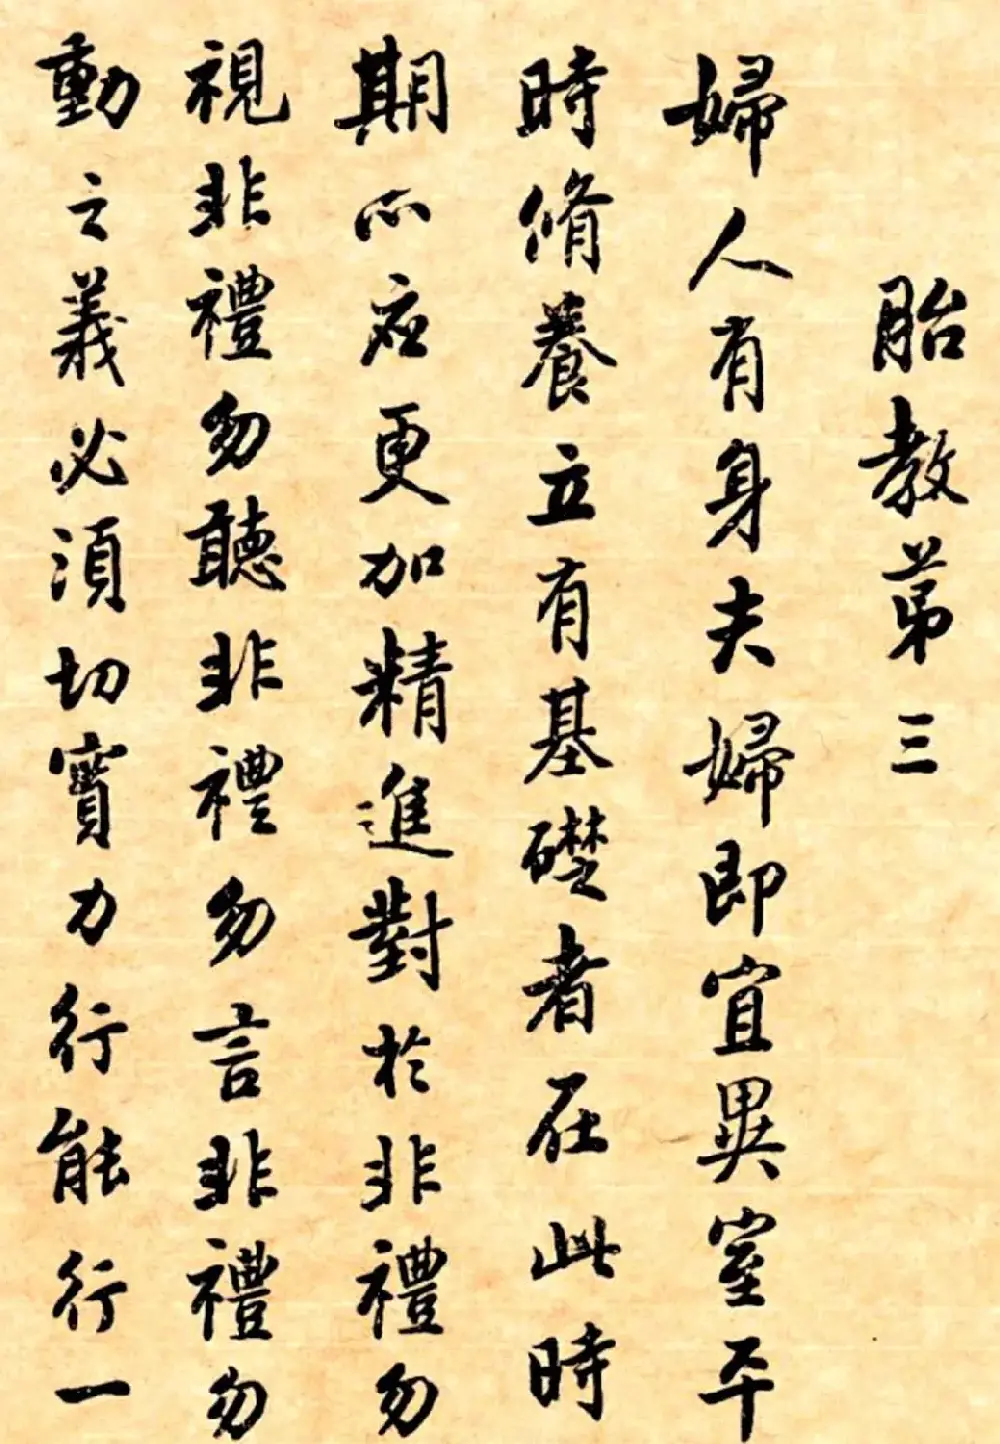 胎教第三
婦人有身夫婦即宜異室平
時脩養立有基礎者在此時
期心应更加精進對於非禮勿
視非禮勿聽非禮勿言非禮勿
動之義必須切實力行能行一